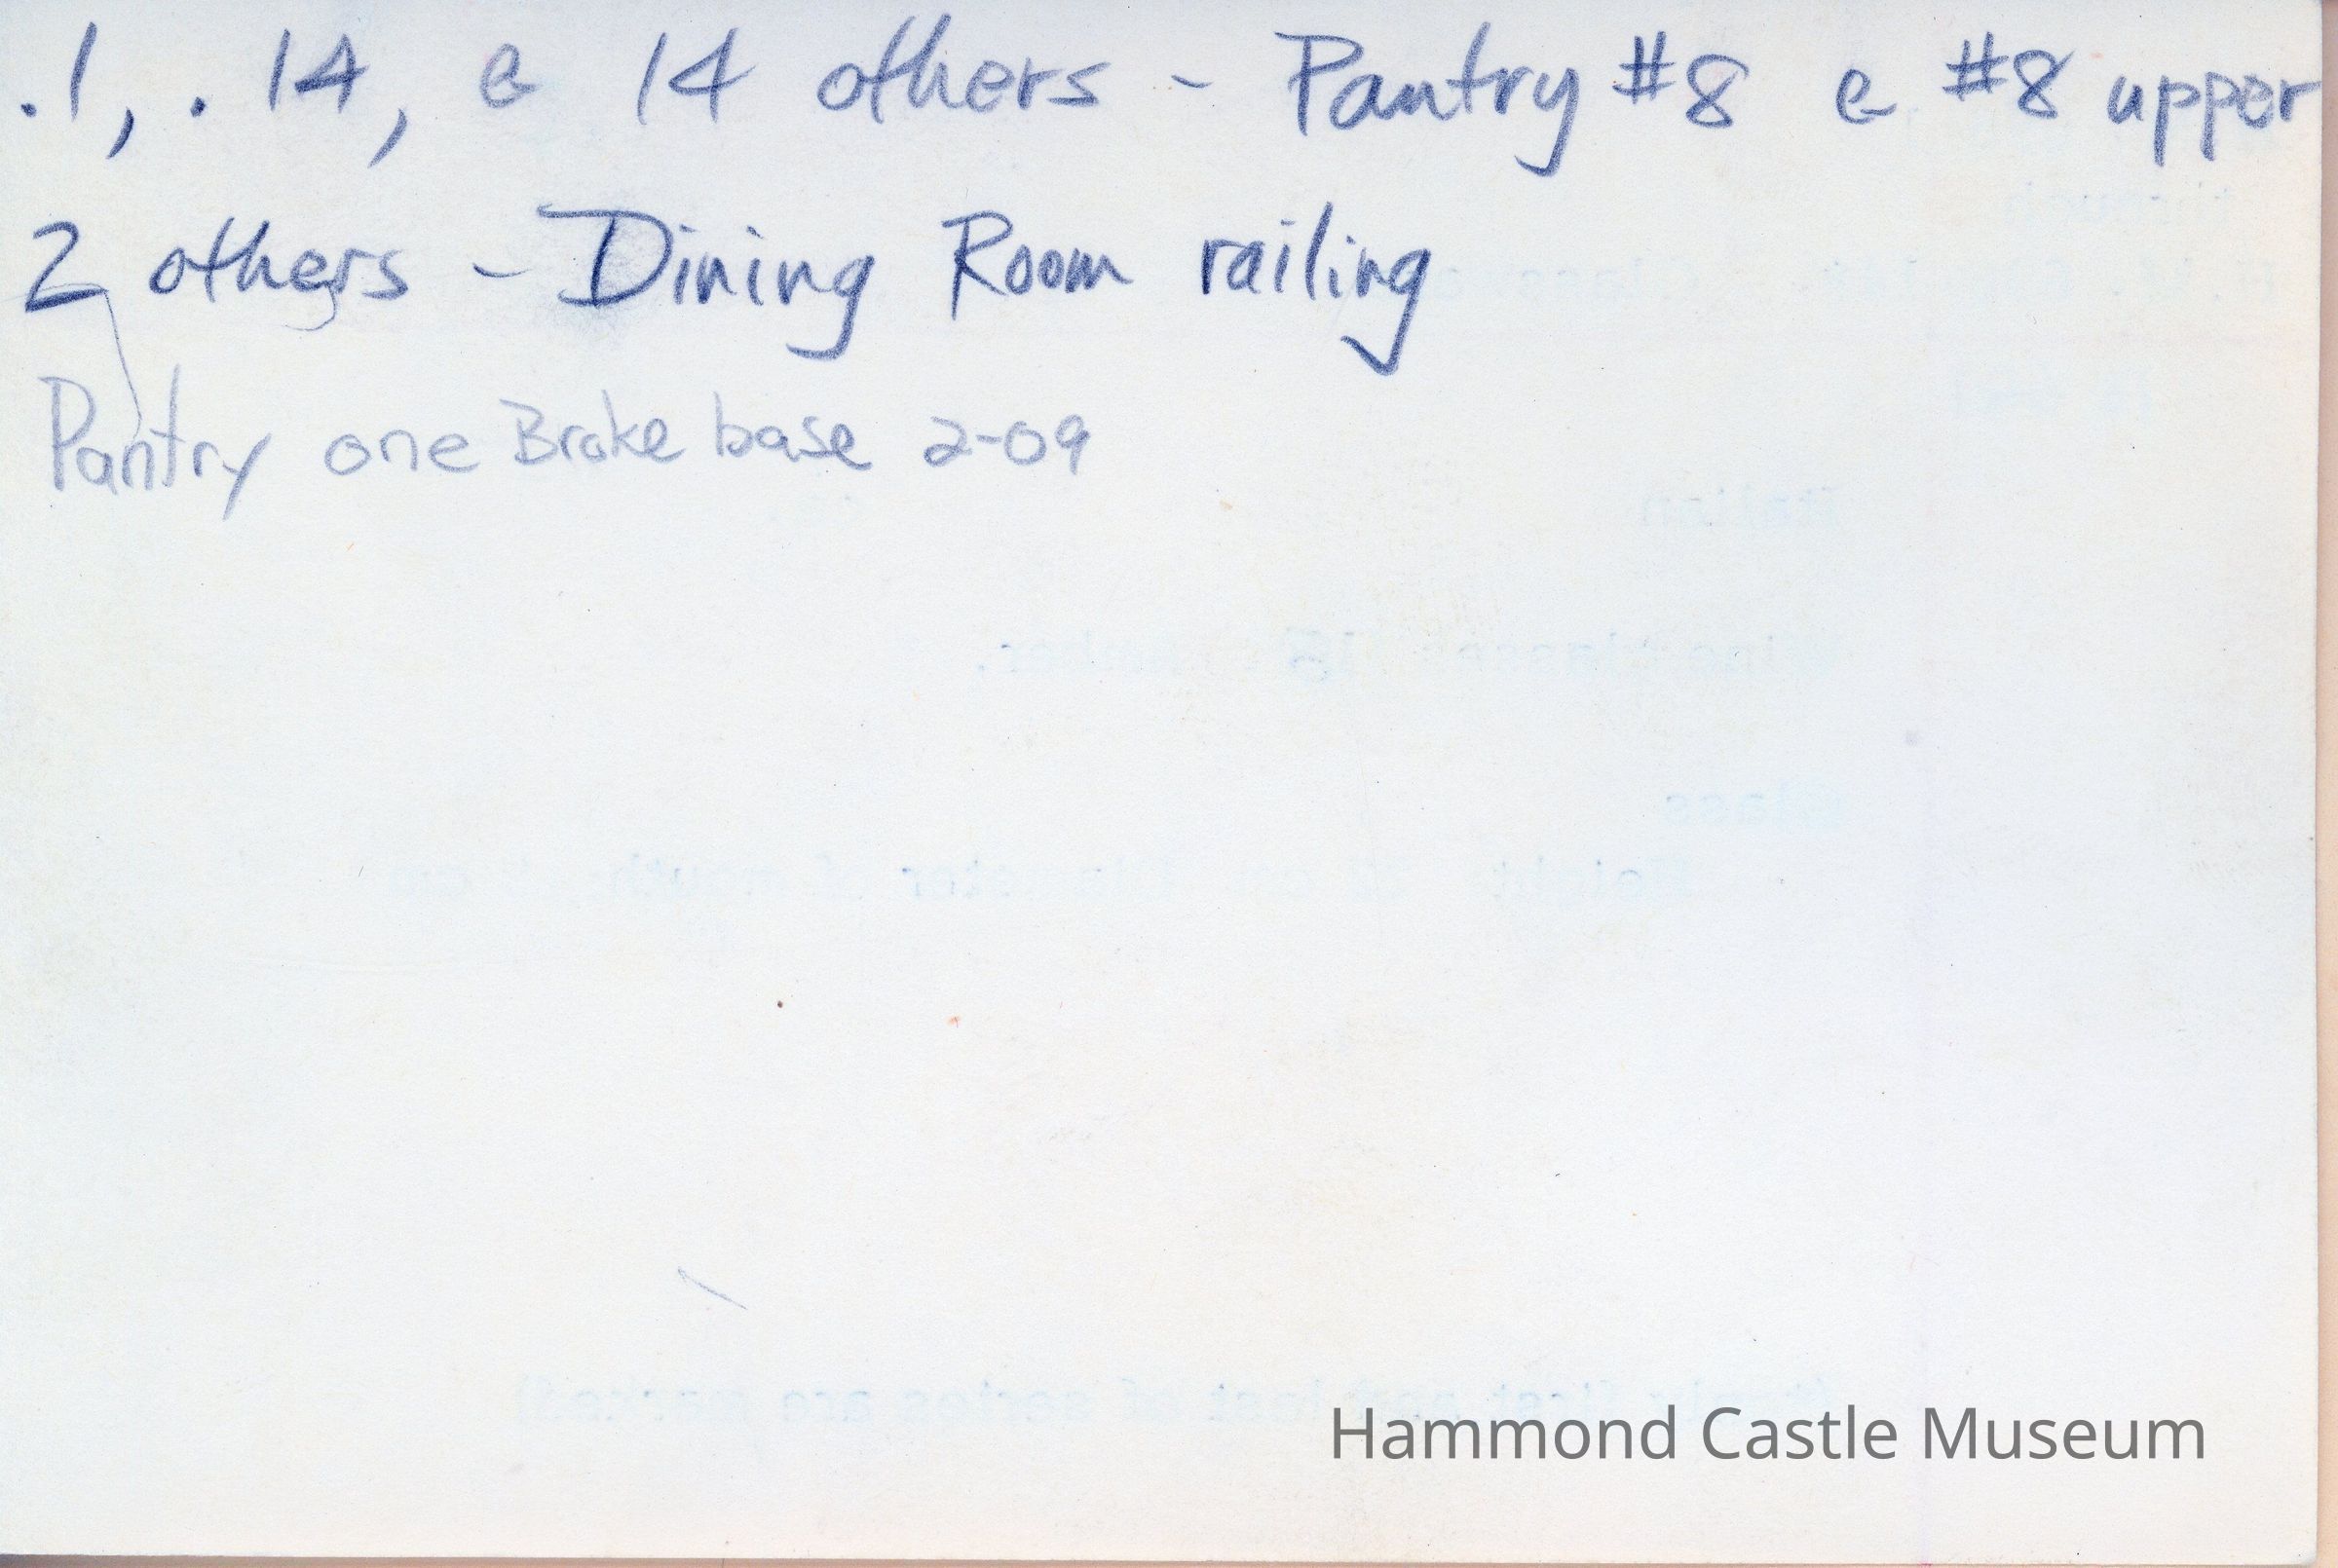 .1, .14, & 14 others - Pantry #8 & #8 upper
2 others - Dining Room railing
Pantry one Broke base 2-09
Hammond Castle Museum